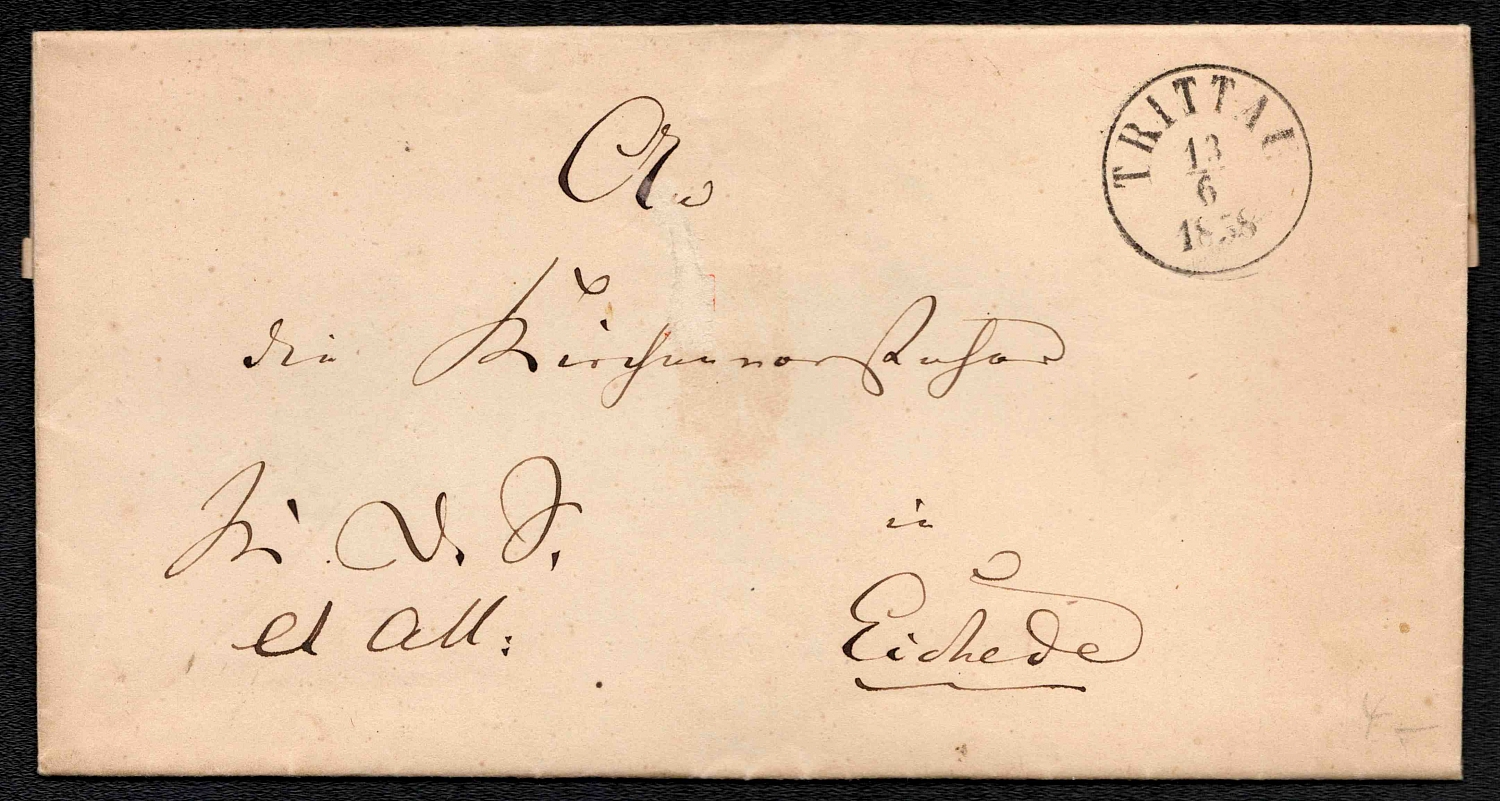 An
die Kirchenvorsteher
in
Eichede
K. D. S.
et att:
TRITTAU
13
6
1858